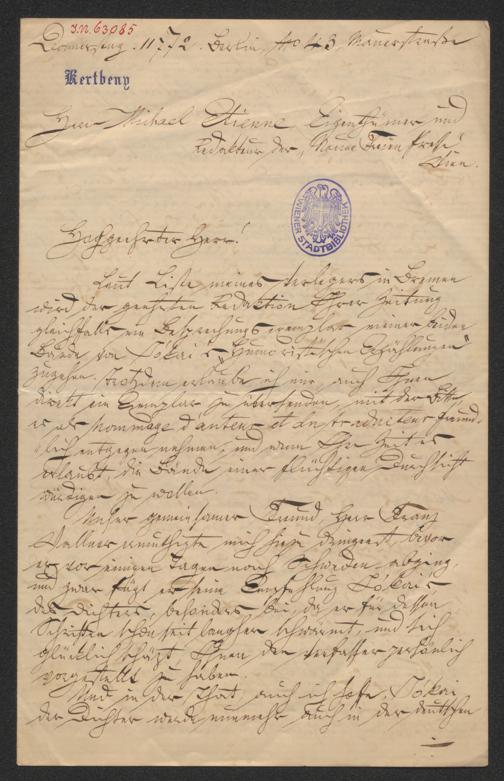 J.N. 63085
Donnerstag. 11/7 72. Berlin, No 43 Mauerstrasse
Kertbeny
Herrn Michael Etienne, Eigenthümer und
Redakteur der „Neuen Freien Presse“
Wien.
WIENER STADTBIBLIOTHEK
Hochgeehrter Herr!
Laut Liste meines Verlegers in Bremen
wird der geehrten Redaktion Ihrer Zeitung
gleichfalls ein Besprechungsexemplar meiner beiden
Bände von Jókai's „Humoristischen Erzählungen“
zugehen. Trotzdem erlaube ich mir, auch Ihnen
direkt ein Exemplar zu übersenden, mit der Bitte
es als hommage d'auteur et du traducteur freund-
lich entgegen nehmen, und wenn Ihre Zeit es
erlaubt, die Bände einer flüchtigen Durchsicht
würdigen zu wollen.
Unser gemeinsamer Freund Herr Franz
Wallner ermuthigte mich hiezu bevor
er vor einigen Tagen nach Schweden abging,
und zwar fügt er seine Empfehlung Jókai's
des Dichters, besonders bei, da er für dessen
Schriften schon seit langher schwärmt, und sich
glücklich schätzt, Ihnen den Verfasser persönlich
vorgestellt zu haben.
Und in der That, auch ich hoffe, Jókai
der Dichter werde nunmehr auch in der deutschen